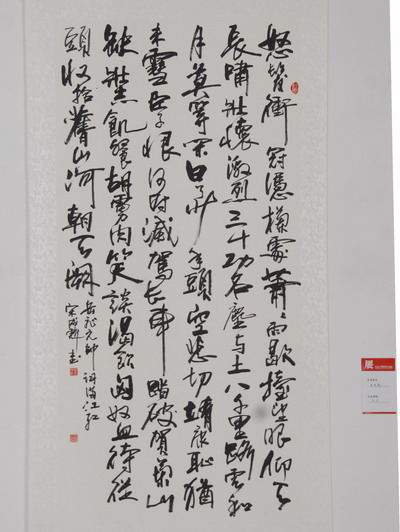 怒髮衝冠憑欄處蕭々雨歇擡望眼仰天
長嘯壯懷激烈三十功名塵与土八千里路雲和
月莫等閑白了少年頭空悲切靖康恥猶
未雪臣子恨何时滅駕長車踏破賀蘭山
缺壯志飢餐胡虜肉笑談渴飲匈奴血待從
頭收拾舊山河朝天闕
岳飛元帥詞滿江紅
宋
展